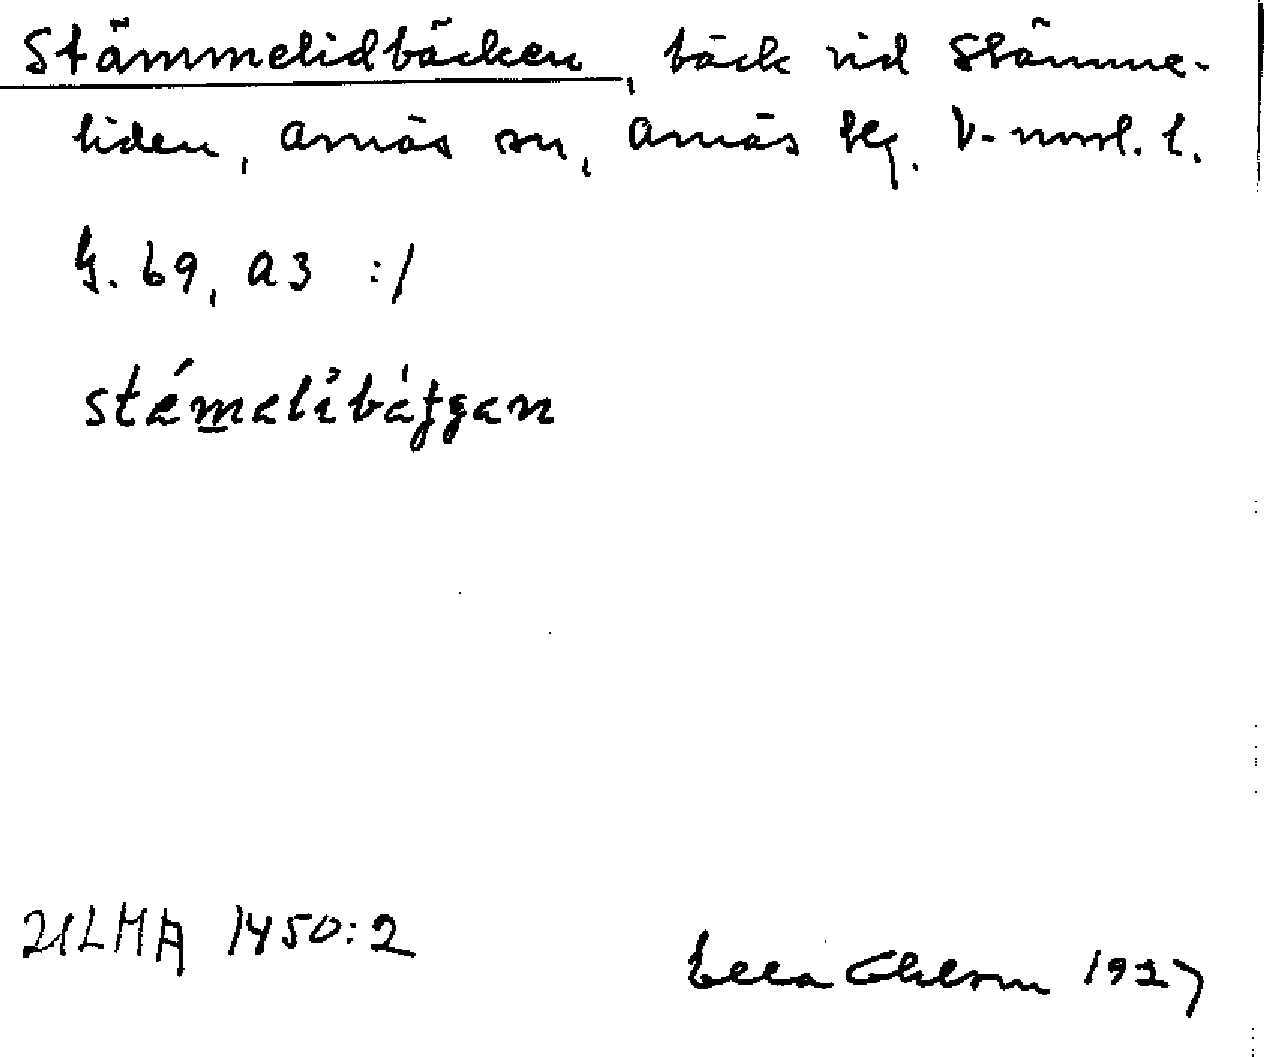 Stämmelidbäcken, bäck vid Stämme-
liden, Arnäs sn, Arnäs hg. V-norrl. l.
G. 69, a3 :/
ULMA 1450:2
Ella Ohlson 1927